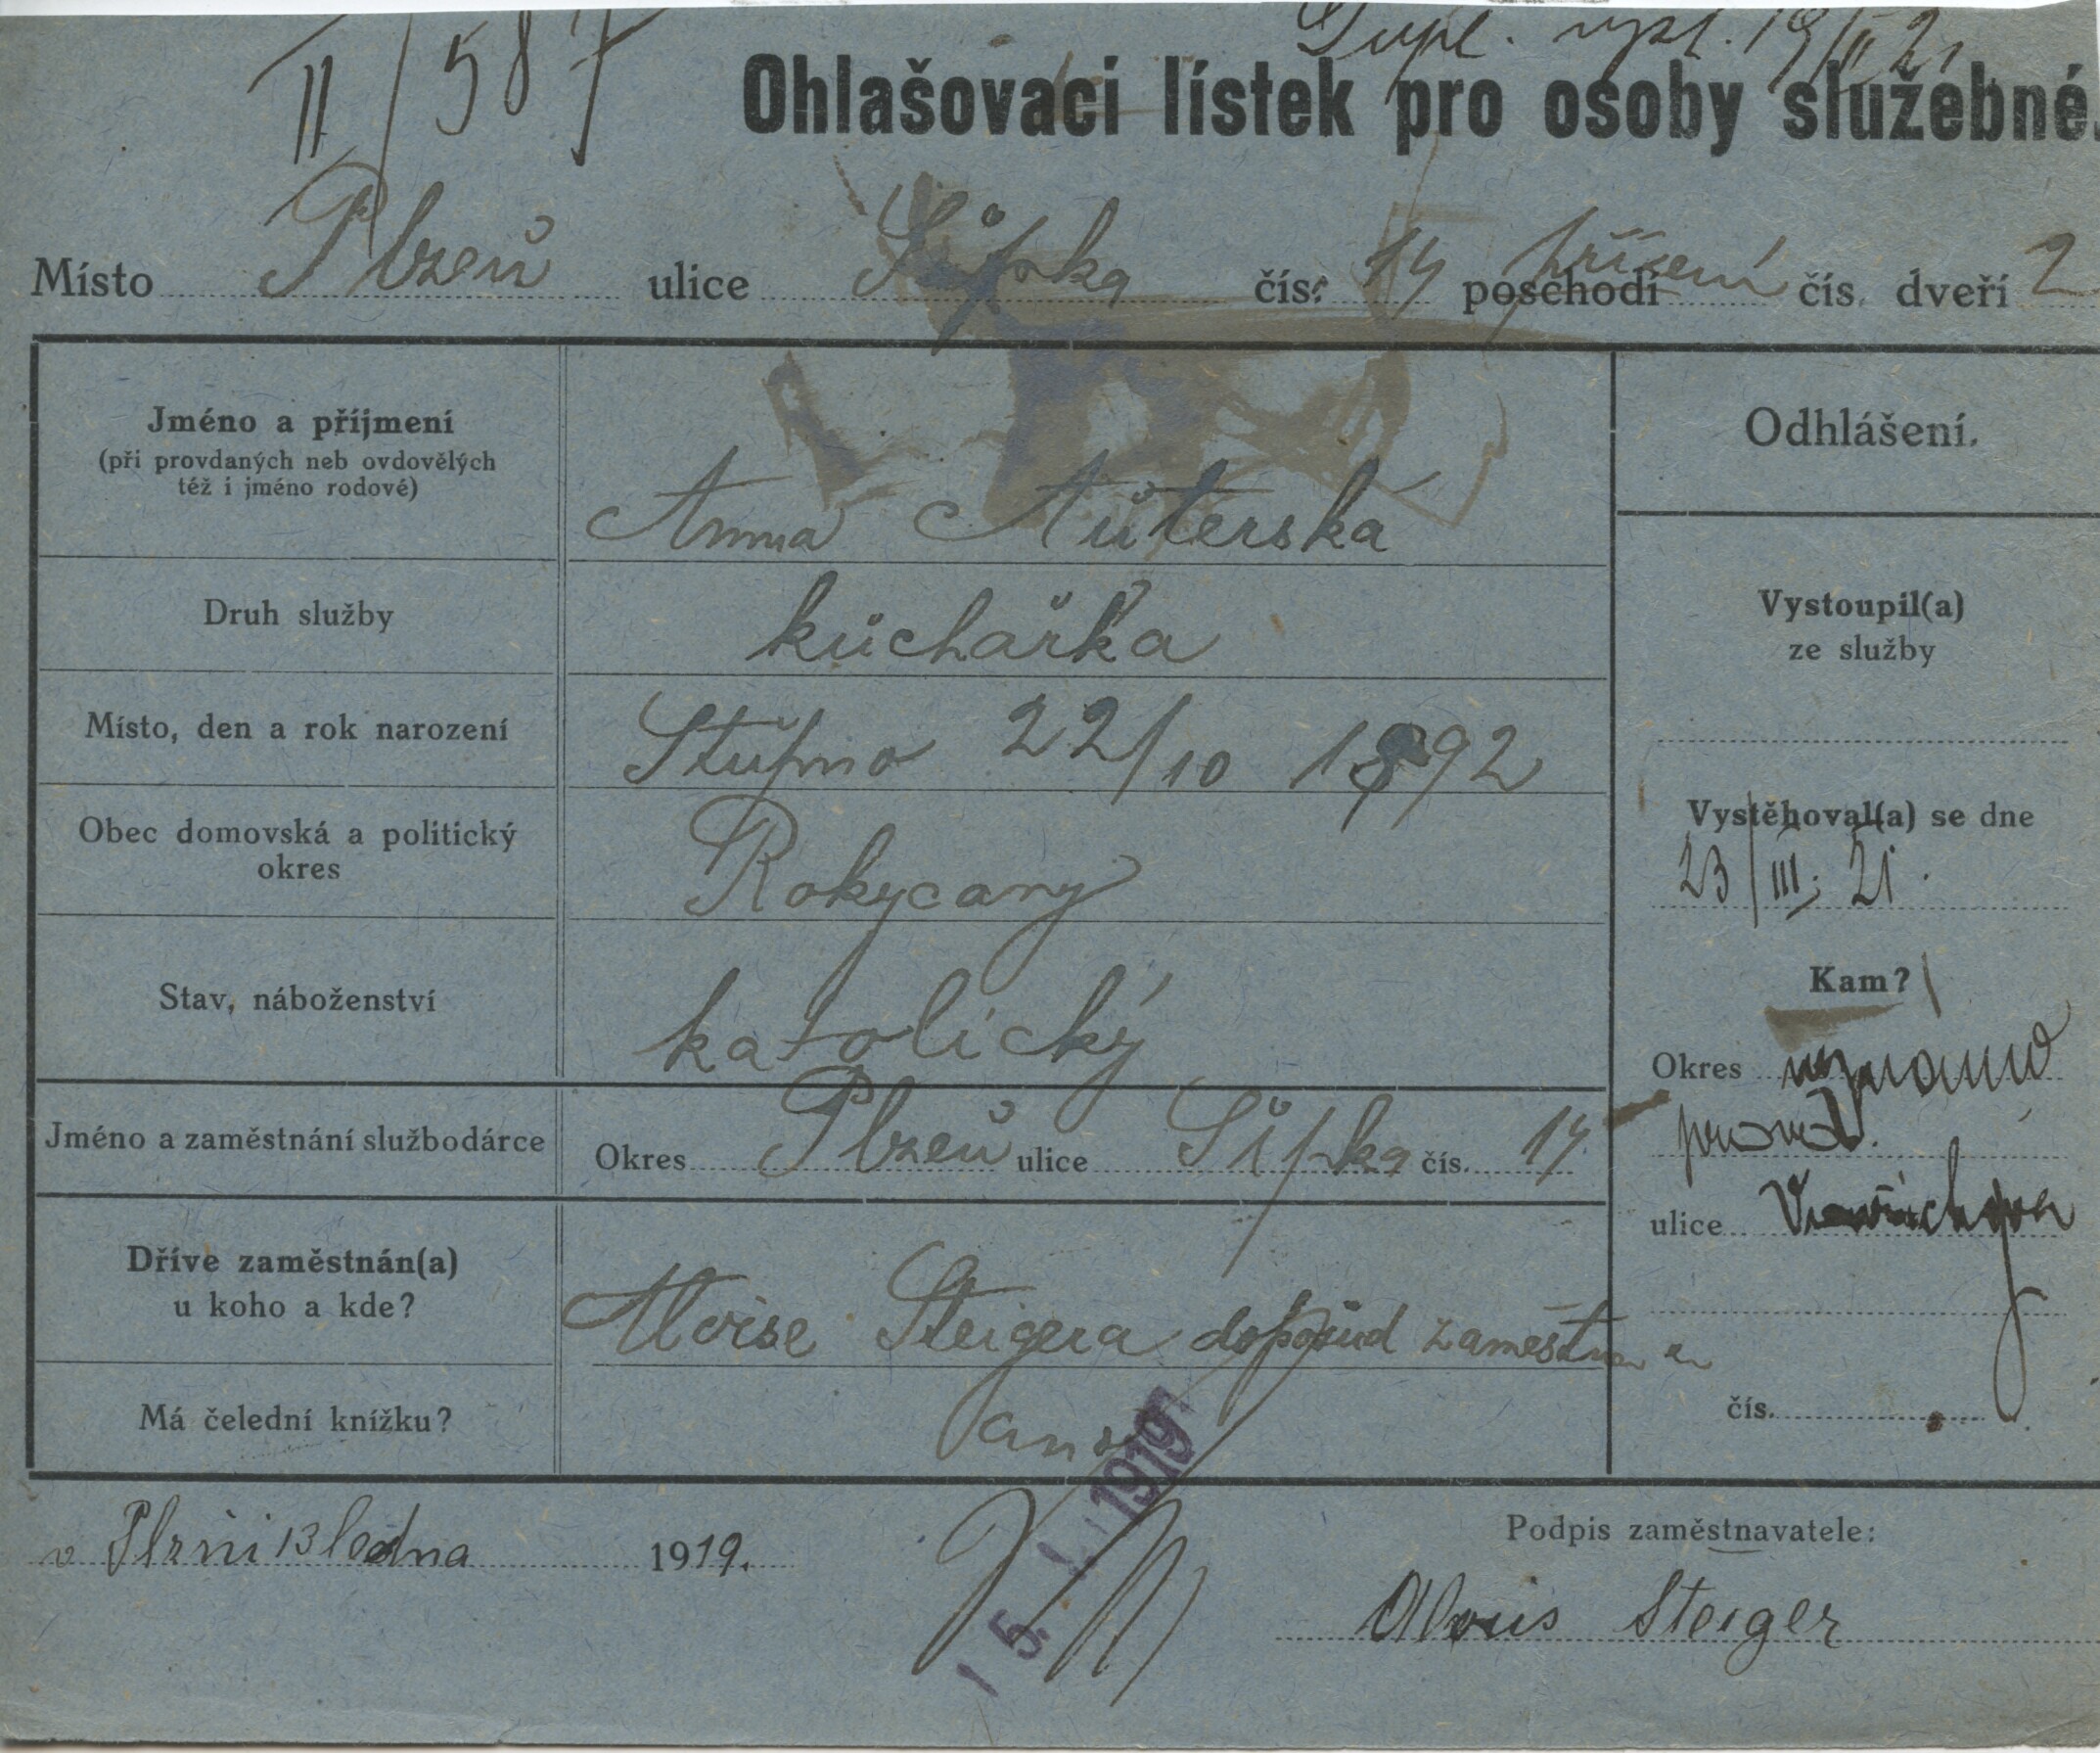 II/587
Dupl. vyst. 19/II 21
Ohlašovací lístek pro osoby služebné.
Místo Plzeň ulice Šípka čís. 14 poschodí přízemí čís. dveří 2
Jméno a příjmení
(při provdaných neb ovdovělých
též i jméno rodové)
Anna Aŭterská
Druh služby
kŭchařka
Místo, den a rok narození
Stŭpno 22/10 1892
Obec domovská a politický
okres
Rokycany
Stav, náboženství
katolický
Jméno a zaměstnání službodárce
Okres Plzeň ulice Šípka čís. 14
Dříve zaměstnán(a)
u koho a kde?
Aloise Steigera doposŭd zaměstnan
Má čelední knížku?
ano
Odhlášení.
Vystoupil(a)
ze služby
Vystěhoval(a) se dne
23/III. 21.
Kam?
Okres neznámo
ulice
čís.
v Plzni 13 ledna 1919.
15. I. 1919
Podpis zaměstnavatele:
Alois Steiger